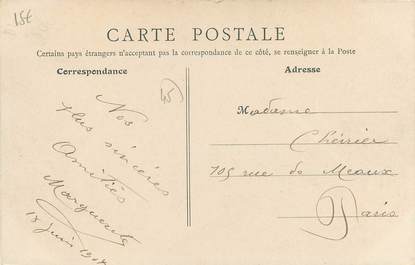 15€
CARTE POSTALE
Certains pays étrangers n'acceptant pas la correspondance de ce côté, se renseigner à la Poste
Correspondance
Adresse
45
Nos
plus sincères
Amitiés
Marguerite
18 Juin
Madame
Chérrier
105 rue de Meaux
Paris